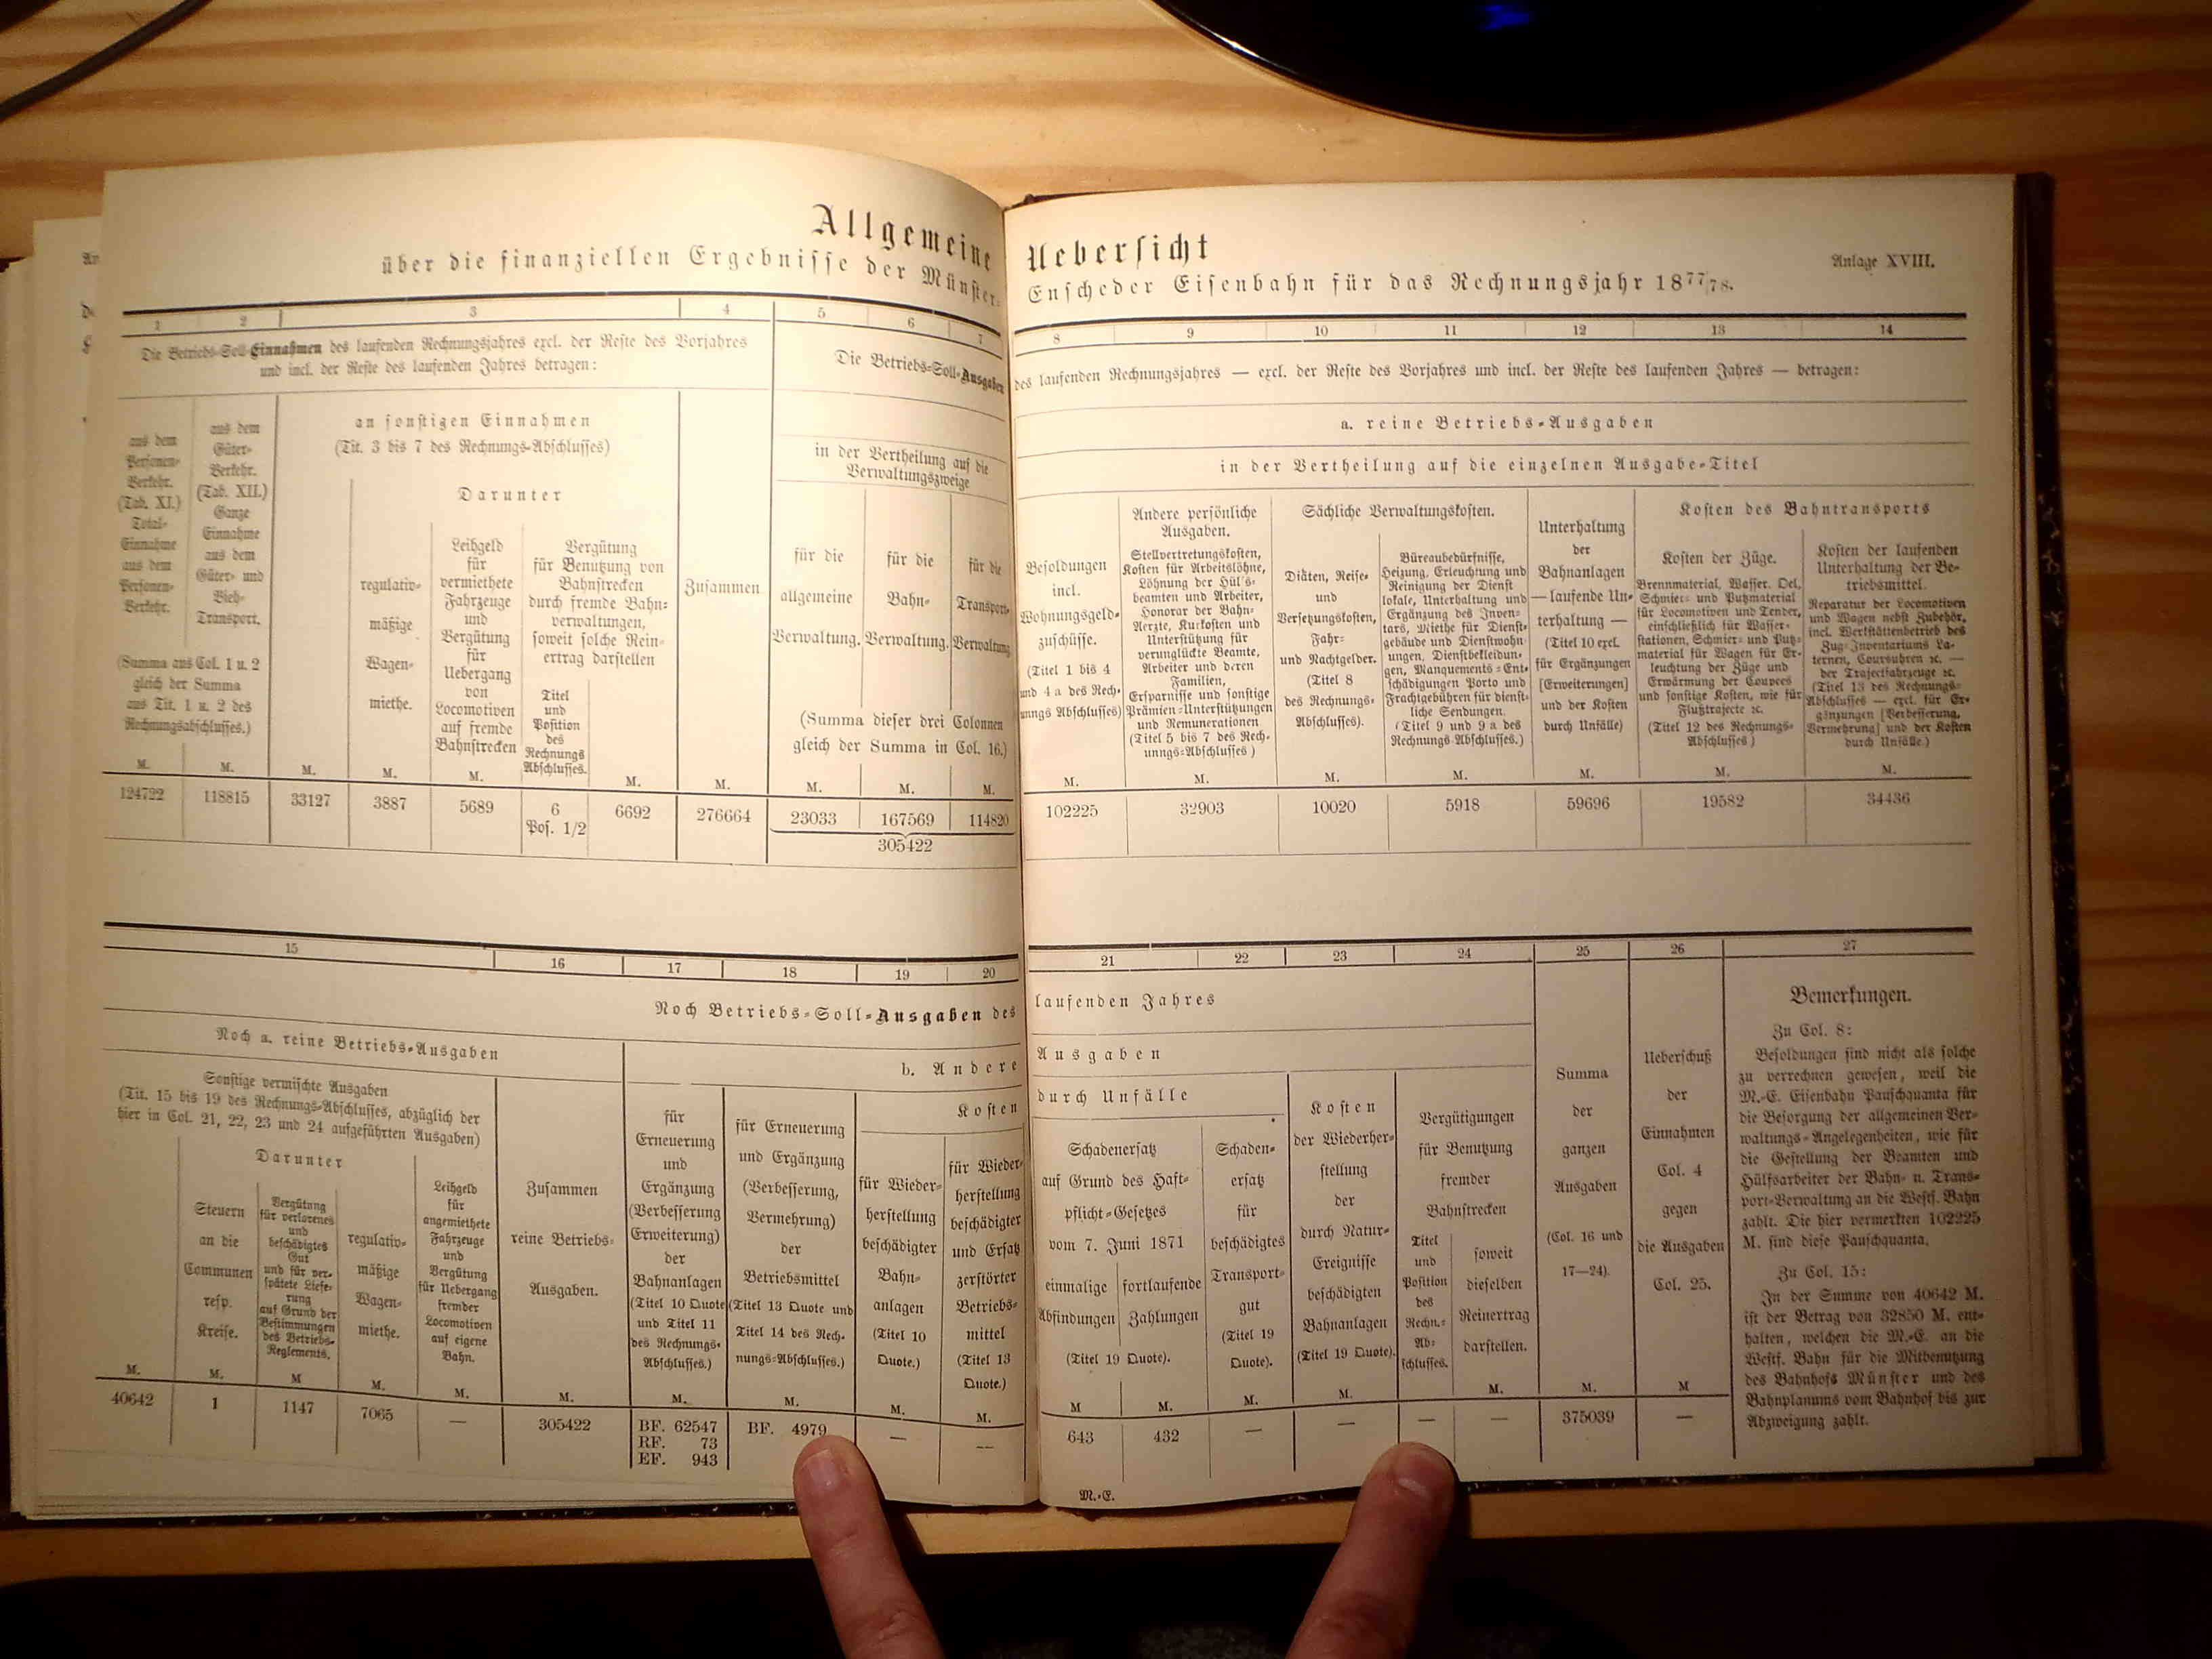 Allgemeine Uebersicht
über die finanziellen Ergebnisse der Münster-Enscheder Eisenbahn für das Rechnungsjahr 1877/78.
Anlage XVIII.
1 2 3 4 5 6 7
Die Betriebs-Soll-Einnahmen des laufenden Rechnungsjahres excl. der Reste des Vorjahres
und incl. der Reste des laufenden Jahres betragen:
Die Betriebs-Soll-Ausgaben
an sonstigen Einnahmen
(Tit. 3 bis 7 des Rechnungs-Abschlusses)
Darunter
in der Vertheilung auf die
Verwaltungszweige
aus dem
Personen-
Verkehr.
(Tab. XI.)
Total-
Einnahme
aus dem
Personen-
Verkehr.
aus dem
Güter-
Verkehr.
(Tab. XII.)
Ganze
Einnahme
aus dem
Güter- und
Vieh-
Transport.
(Summa aus Col. 1 u. 2
gleich der Summa
aus Tit. 1 u. 2 des
Rechnungsabschlusses.)
regulativ-
mäßige
Wagen-
miethe.
Leihgeld
für
vermiethete
Fahrzeuge
und
Vergütung
für
Uebergang
von
Locomotiven
auf fremde
Bahnstrecken
Vergütung
für Benutzung von
Bahnstrecken
durch fremde Bahn-
verwaltungen,
soweit solche Rein-
ertrag darstellen
Titel
und
Position
des
Rechnungs
Abschlusses.
Zusammen
für die
allgemeine
Verwaltung.
für die
Bahn-
Verwaltung.
für die
Transport-
Verwaltung
(Summa dieser drei Colonnen
gleich der Summa in Col. 16.)
M. M. M. M. M. M. M. M. M. M.
124722 118815 33127 3887 5689 6 6692 276664 23033 167569 114820
Pos. 1/2
305422
8 9 10 11 12 13 14
des laufenden Rechnungsjahres — excl. der Reste des Vorjahres und incl. der Reste des laufenden Jahres — betragen:
a. reine Betriebs-Ausgaben
in der Vertheilung auf die einzelnen Ausgabe-Titel
Besoldungen
incl.
Wohnungsgeld-
zuschüsse.
(Titel 1 bis 4
und 4 a des Rech-
nungs Abschlusses)
Andere persönliche
Ausgaben.
Stellvertretungskosten,
Kosten für Arbeitslöhne,
Löhnung der Hülfs-
beamten und Arbeiter,
Honorar der Bahn-
Aerzte, Kurkosten und
Unterstützung für
verunglückte Beamte,
Arbeiter und deren
Familien,
Ersparnisse und sonstige
Prämien-Unterstützungen
und Remunerationen
(Titel 5 bis 7 des Rech-
nungs-Abschlusses )
Sächliche Verwaltungskosten.
Diäten, Reise-
und
Versetzungskosten,
Fahr-
und Nachtgelder.
(Titel 8
des Rechnungs-
Abschlusses).
Büreaubedürfnisse,
Heizung, Erleuchtung und
Reinigung der Dienst
lokale, Unterhaltung und
Ergänzung des Inven-
tars, Miethe für Dienst-
gebäude und Dienstwohn-
ungen, Dienstbekleidun-
gen, Manquements-Ent-
schädigungen Porto und
Frachtgebühren für dienst-
liche Sendungen.
(Titel 9 und 9 a des
Rechnungs-Abschlusses.)
Unterhaltung
der
Bahnanlagen
— laufende Un-
terhaltung —
(Titel 10 excl.
für Ergänzungen
[Erweiterungen]
und der Kosten
durch Unfälle)
Kosten des Bahntransports
Kosten der Züge.
Brennmaterial, Wasser. Oel,
Schmier- und Putzmaterial
für Locomotiven und Tender,
einschließlich für Wasser-
stationen, Schmier- und Putz-
material für Wagen für Er-
leuchtung der Züge und
Erwärmung der Coupees
und sonstige Kosten, wie für
Flußtrajecte ꝛc.
(Titel 12 des Rechnungs-
Abschlusses )
Kosten der laufenden
Unterhaltung der Be-
triebsmittel.
Reparatur der Locomotiven
und Wagen nebst Zubehör,
incl. Werkstättenbetrieb des
Zug-Inventariums La-
ternen, Coursuhren ꝛc. —
der Trajectfahrzeuge ꝛc.
(Titel 13 des Rechnungs-
Abschlusses — excl. für Er-
gänzungen [Verbesserung,
Vermehrung] und der Kosten
durch Unfälle )
M. M. M. M. M. M. M.
102225 32903 10020 5918 59696 19582 34436
15 16 17 18 19 20
Noch Betriebs-Soll-Ausgaben des
Noch a. reine Betriebs-Ausgaben
b. Andere
Sonstige vermischte Ausgaben
(Tit. 15 bis 19 des Rechnungs-Abschlusses, abzüglich der
hier in Col. 21, 22, 23 und 24 aufgeführten Ausgaben)
Darunter
Steuern
an die
Communen
resp.
Kreise.
Vergütung
für verlorenes
und
beschädigtes
Gut
und für ver-
spätete Liefe-
rung
auf Grund der
Bestimmungen
des Betriebs-
Reglements.
regulativ-
mäßige
Wagen-
miethe.
Leihgeld
für
angemiethete
Fahrzeuge
und
Vergütung
für Uebergang
fremder
Locomotiven
auf eigene
Bahn.
Zusammen
reine Betriebs-
Ausgaben.
für
Erneuerung
und
Ergänzung
(Verbesserung
Erweiterung)
der
Bahnanlagen
(Titel 10 Quote
und Titel 11
des Rechnungs-
Abschlusses.)
für Erneuerung
und Ergänzung
(Verbesserung,
Vermehrung)
der
Betriebsmittel
(Titel 13 Quote und
Titel 14 des Rech-
nungs-Abschlusses.)
Kosten
für Wieder-
herstellung
beschädigter
Bahn-
anlagen
(Titel 10
Quote.)
für Wieder-
herstellung
beschädigter
und Ersatz
zerstörter
Betriebs-
mittel
(Titel 13
Quote.)
M. M. M M. M. M. M. M. M. M.
40642 1 1147 7065 — 305422 BF. 62547 BF. 4979 — —
RF. 73
EF. 943
21 22 23 24 25 26 27
laufenden Jahres
Ausgaben
durch Unfälle
Schadenersatz
auf Grund des Haft-
pflicht-Gesetzes
vom 7. Juni 1871
einmalige
Abfindungen
fortlaufende
Zahlungen
(Titel 19 Quote).
Schaden-
ersatz
für
beschädigtes
Transport-
gut
(Titel 19
Quote).
Kosten
der Wiederher-
stellung
der
durch Natur-
Ereignisse
beschädigten
Bahnanlagen
(Titel 19 Quote).
Vergütigungen
für Benutzung
fremder
Bahnstrecken
Titel
und
Position
des
Rechn.-
Ab-
schlusses.
soweit
dieselben
Reinertrag
darstellen.
Summa
der
ganzen
Ausgaben
(Col. 16 und
17—24).
Ueberschuß
der
Einnahmen
Col. 4
gegen
die Ausgaben
Col. 25.
M M. M. M. M. M. M
643 432 — — — — 375039 —
Bemerkungen.
Zu Col. 8:
Besoldungen sind nicht als solche
zu verrechnen gewesen, weil die
M.-E. Eisenbahn Pauschquanta für
die Besorgung der allgemeinen Ver-
waltungs-Angelegenheiten, wie für
die Gestellung der Beamten und
Hülfsarbeiter der Bahn- u. Trans-
port-Verwaltung an die Westf. Bahn
zahlt. Die hier vermerkten 102225
M. sind diese Pauschquanta.
Zu Col. 15:
In der Summe von 40642 M.
ist der Betrag von 32850 M. ent-
halten, welchen die M.-E. an die
Westf. Bahn für die Mitbenutzung
des Bahnhofs Münster und des
Bahnplanums vom Bahnhof bis zur
Abzweigung zahlt.
M.-E.